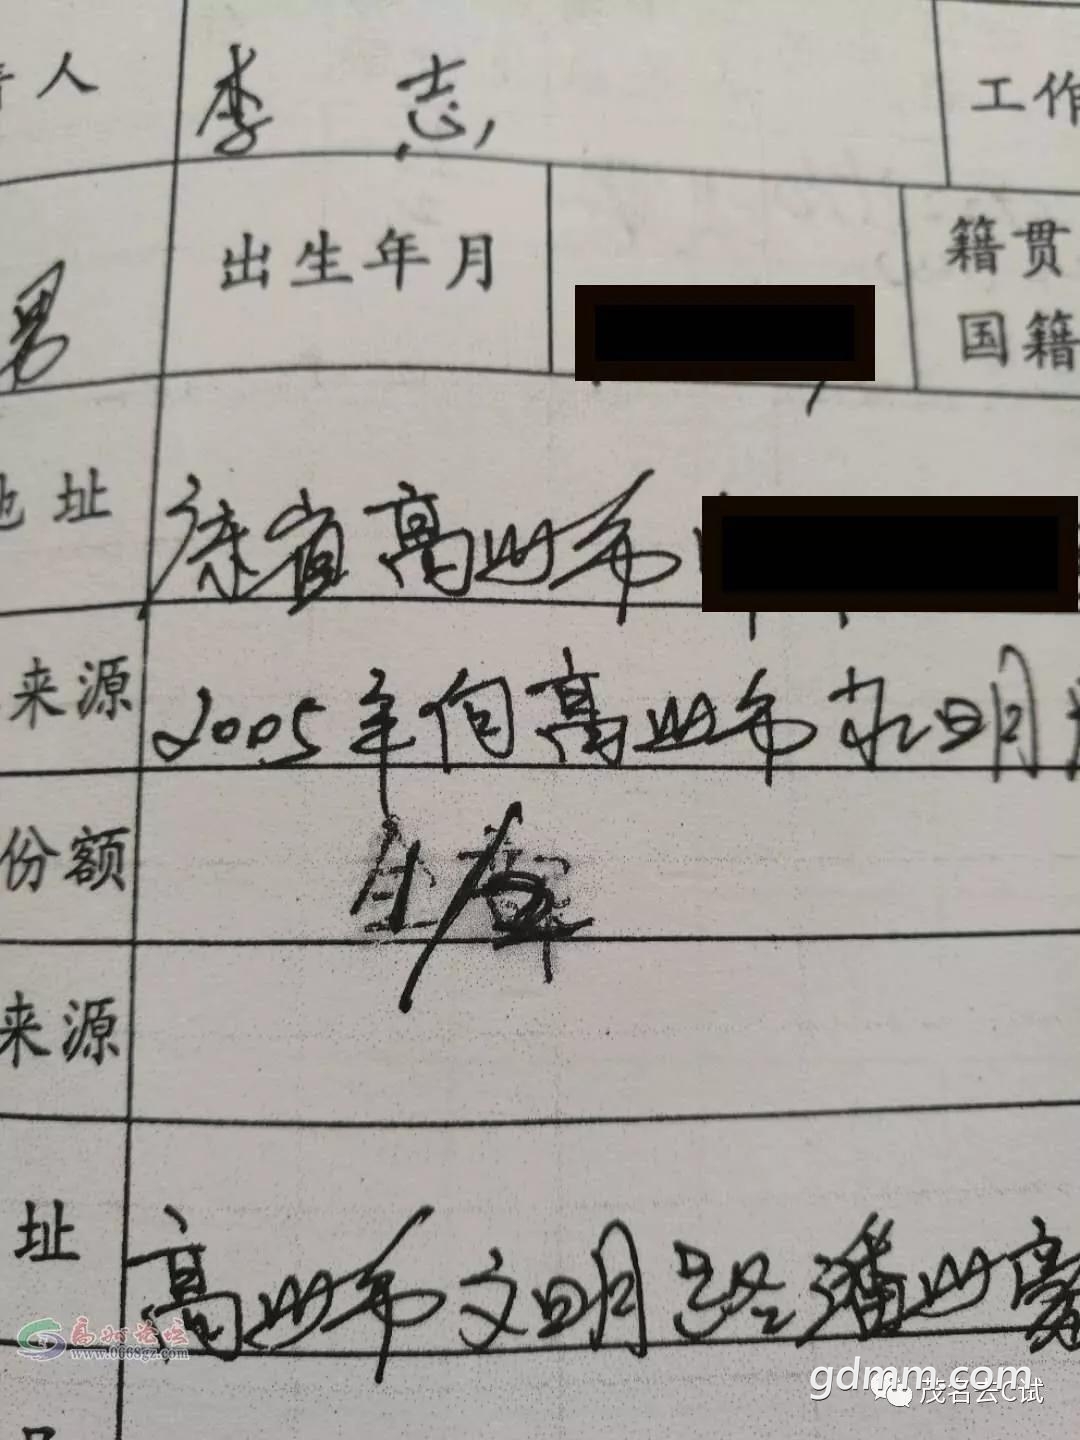 人 李 志 工作
男 出生年月 籍贯
国籍
地址 省高州市
来源 2005年向高州市 明
份额 全部
来源
址 高州市文明路潘州
高州论坛
www.0668gz.com
gdmm.com
茂名云C试